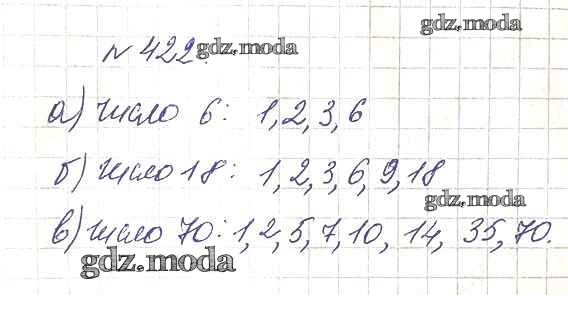 № 422.
gdz.moda
gdz.moda
а) число 6: 1, 2, 3, 6
б) число 18: 1, 2, 3, 6, 9, 18
gdz.moda
в) число 70: 1, 2, 5, 7, 10, 14, 35, 70.
gdz.moda